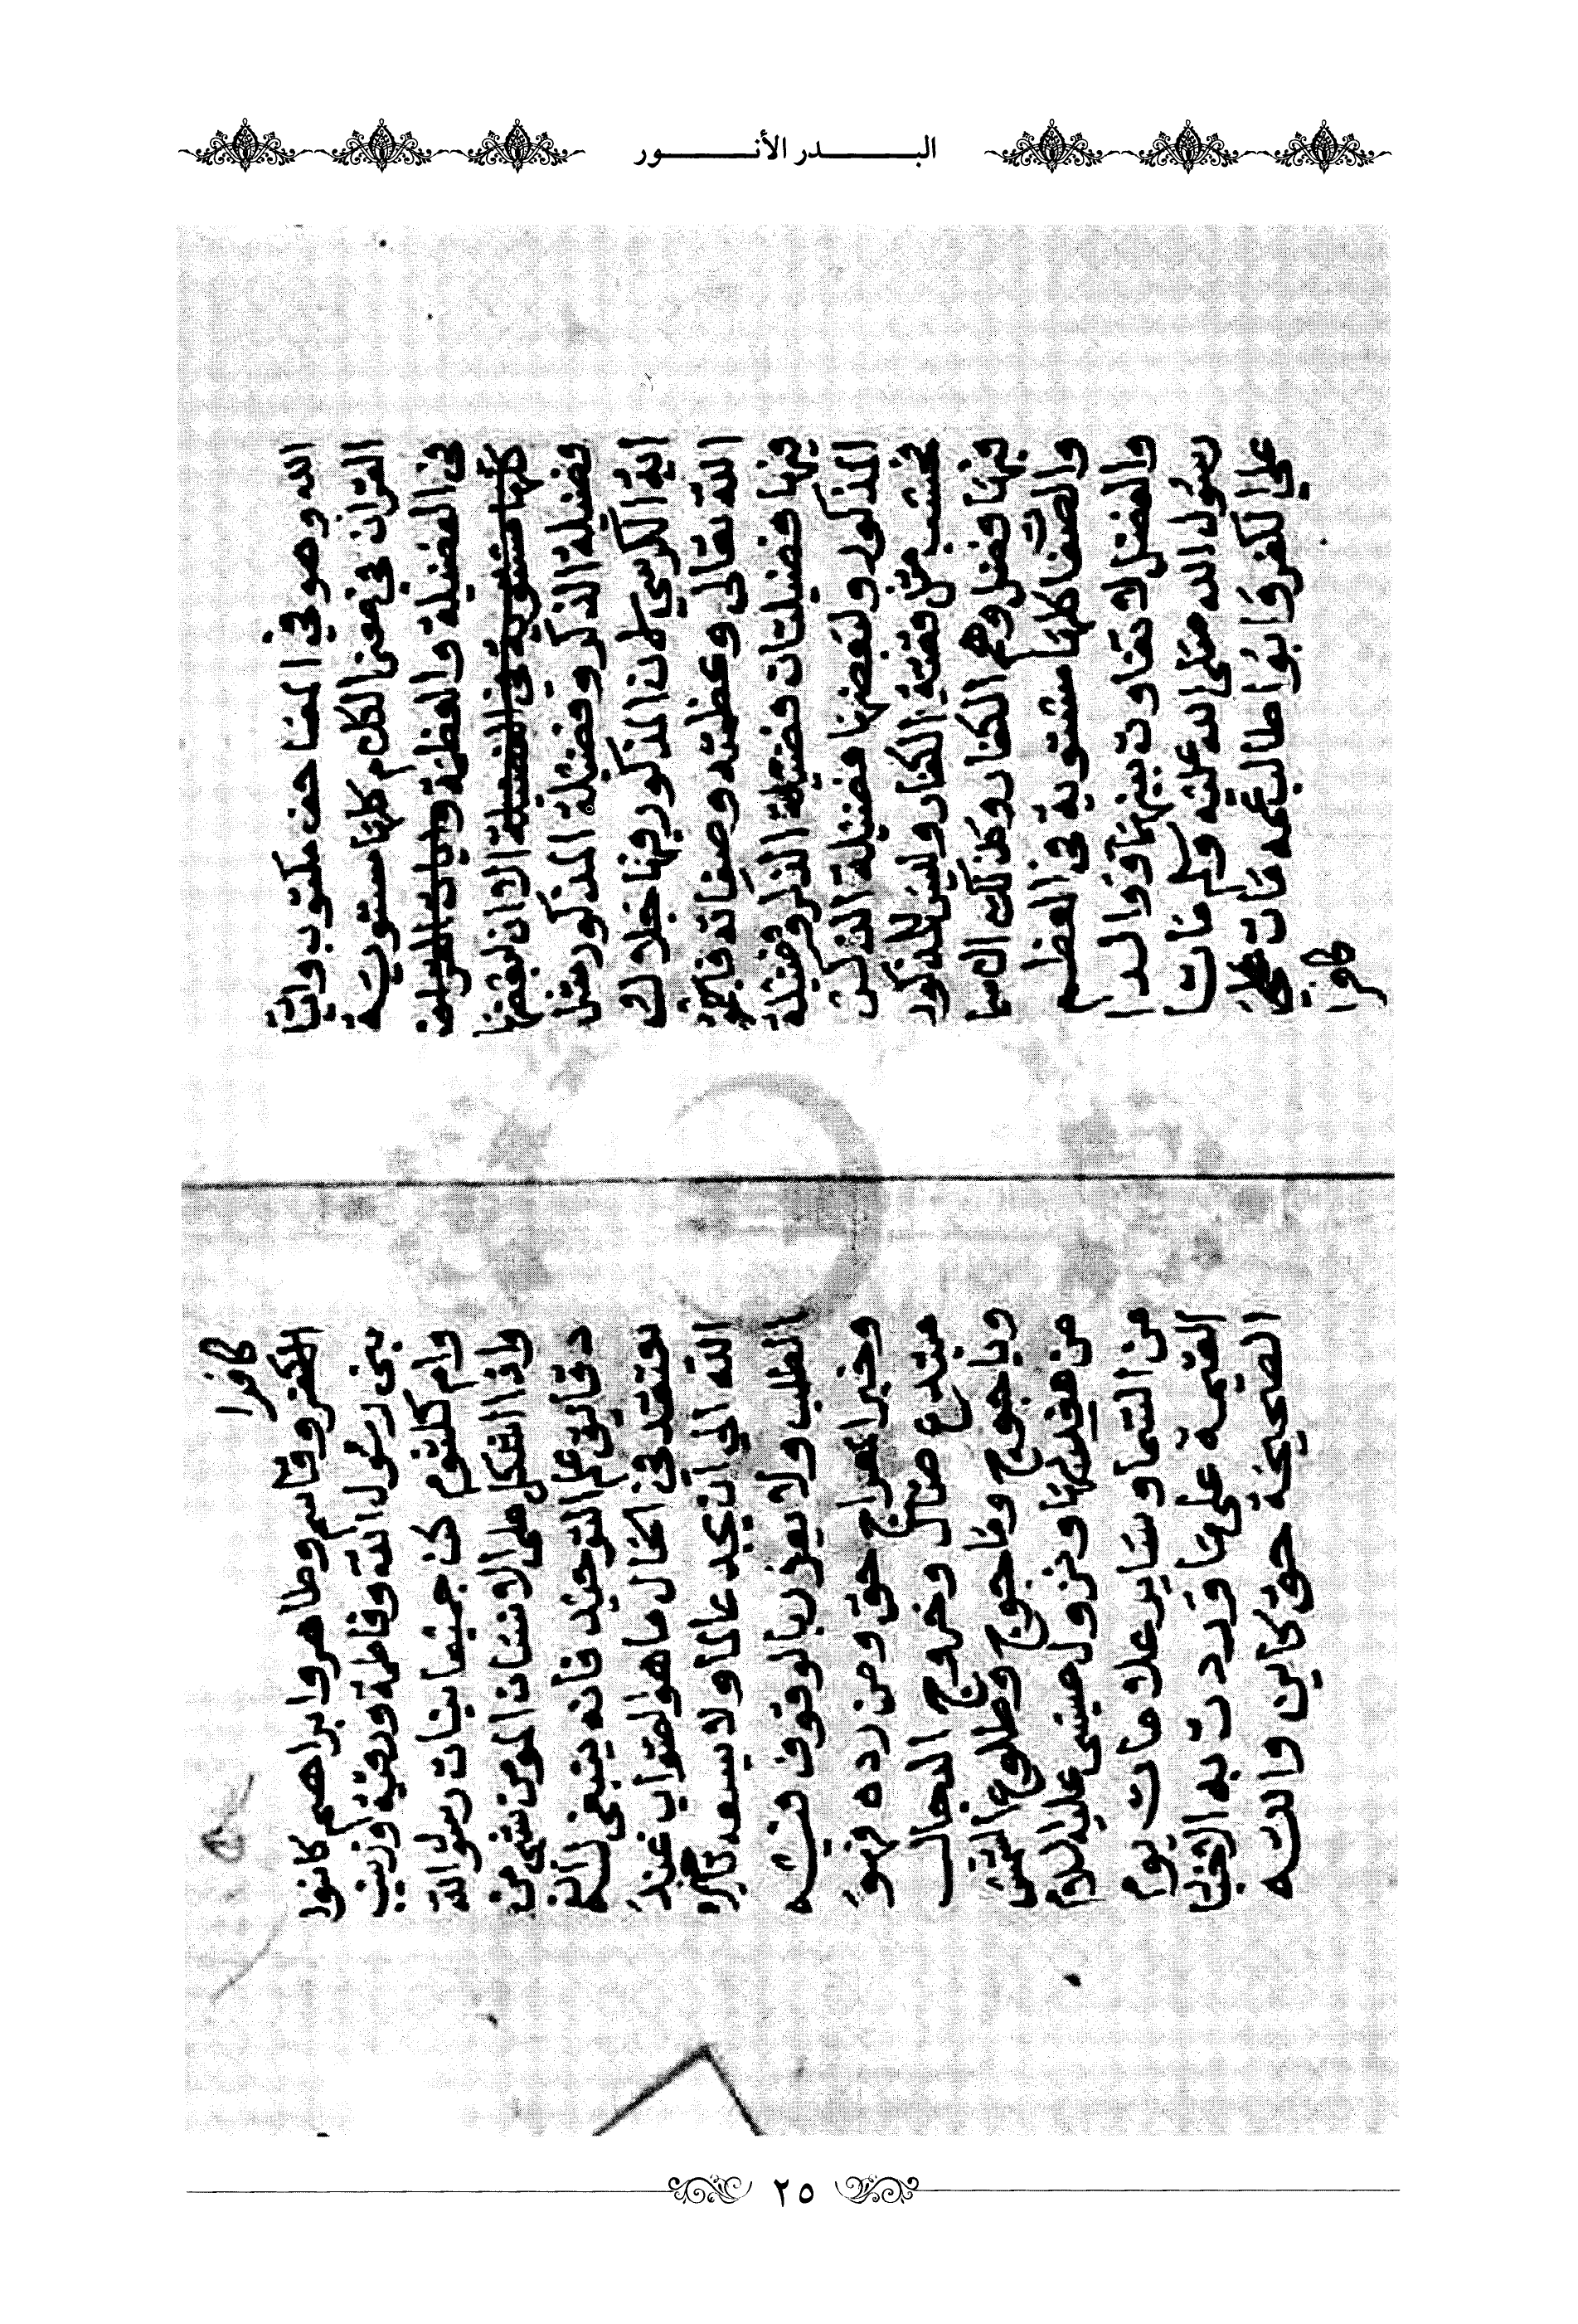 البدر الأنور
الله وهو في المصاحف مكتوب وايات
القران في معنى الكلام كلها مستوية
في الفضيلة والعظمة
كلها مستوية في الفضيلة الا ان لبعضها
فضيلة الذكر وفضيلة المذكور مثل
اية الكرسي لان المذكور فيها جلال
الله تعالى وعظمته وصفاته
فيها فضيلتان فضيلة الذكر وفضيلة
المذكور ولبعضها فضيلة الذكر
فحسب مثل قصة الكفار وليس للمذكور
فيها فضل وهم الكفار وكذلك الاسما
والصفات كلها مستوية في العظم
والفضل لا تفاوت بينها ووالدا
رسول الله صلى الله عليه وسلم ماتا
على الكفر وابو طالب عمه مات
كافرا
كافرا
وقاسم وطاهر وابراهيم كانوا
بني رسول الله وفاطمة ورقية وزينب
وام كلثوم كن جميعا بنات رسول الله
واذا اشكل على الانسان المؤمن شي من
دقايق علم التوحيد فانه ينبغي له ان
يعتقد في الحال ما هو الصواب عند
الله الى ان يجد عالما ولا يسعه تاخير
الطلب ولا يعذر بالوقوف فيه
وخبر المعراج حق ومن رده فهو
مبتدع ضال وخروج الدجال
وياجوج وماجوج وطلوع الشمس
من مغربها ونزول عيسى عليه السلام
من السما وساير علامات يوم
القيمة على ما وردت به الاخبار
الصحيحة حق كاين والله
٢٥